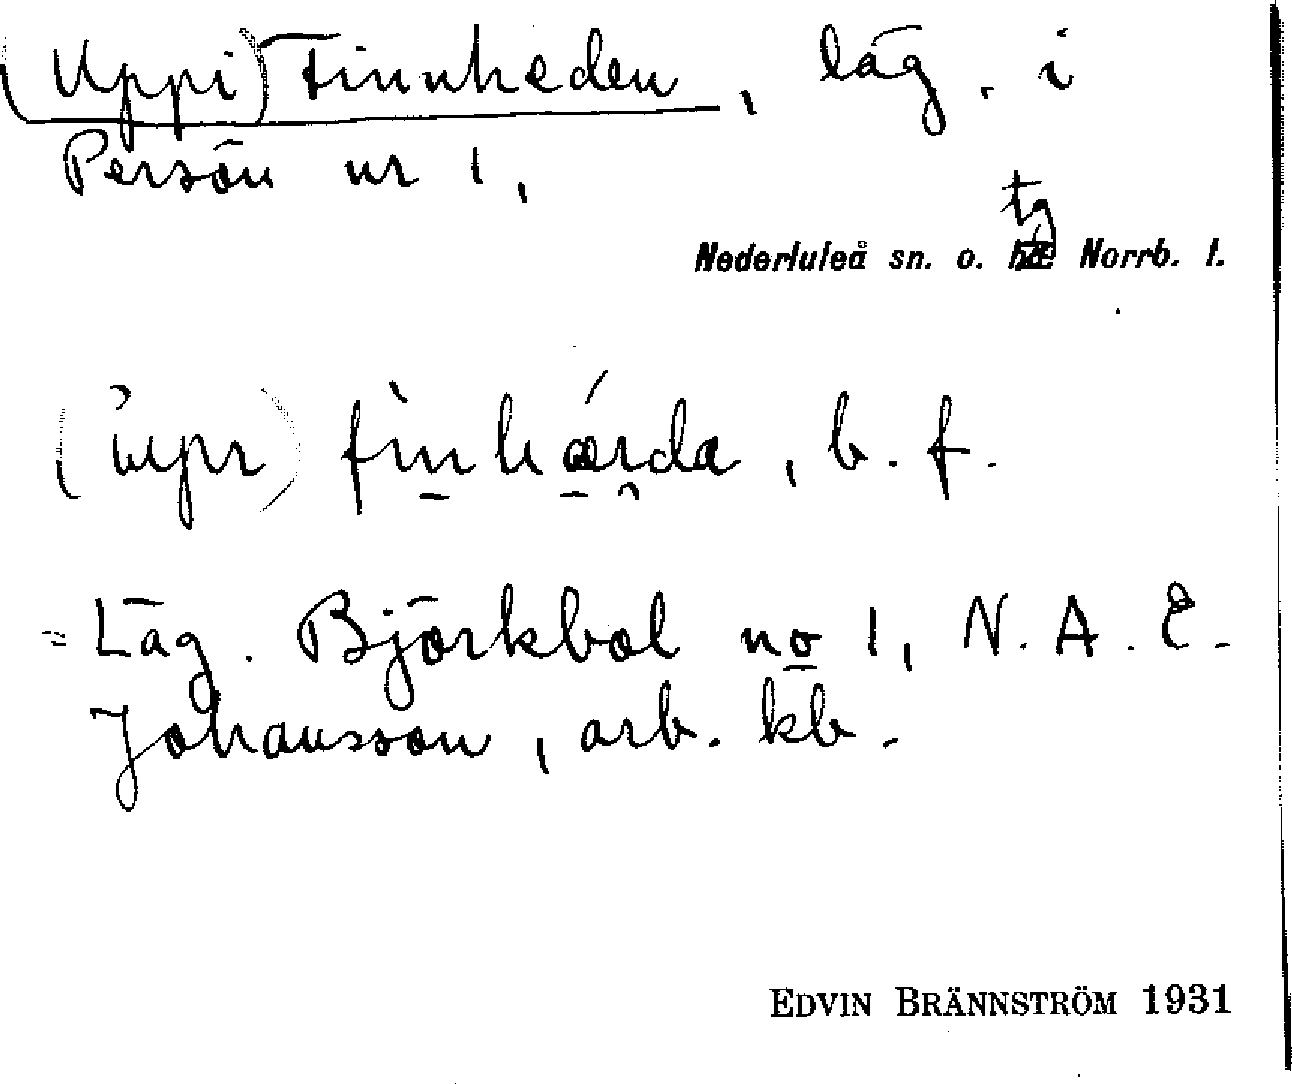 (Uppi) Finnheden, läg. i
Persön nr 1,
tg
Nederluleå sn. o. Norrb. l.
finhærda, b. f.
= Läg. Björkbol no 1, N. A. E.
Johansson, arb. kb.
EDVIN BRÄNNSTRÖM 1931